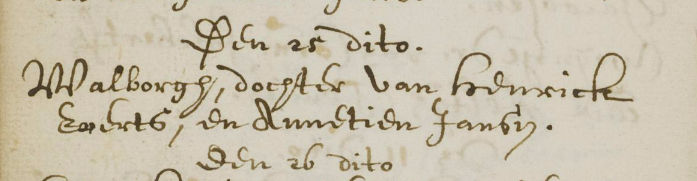 Den 25 dito.
Walborgh, dochter van Henrick
Everts, en Annetien Jansz.
Den 26 dito